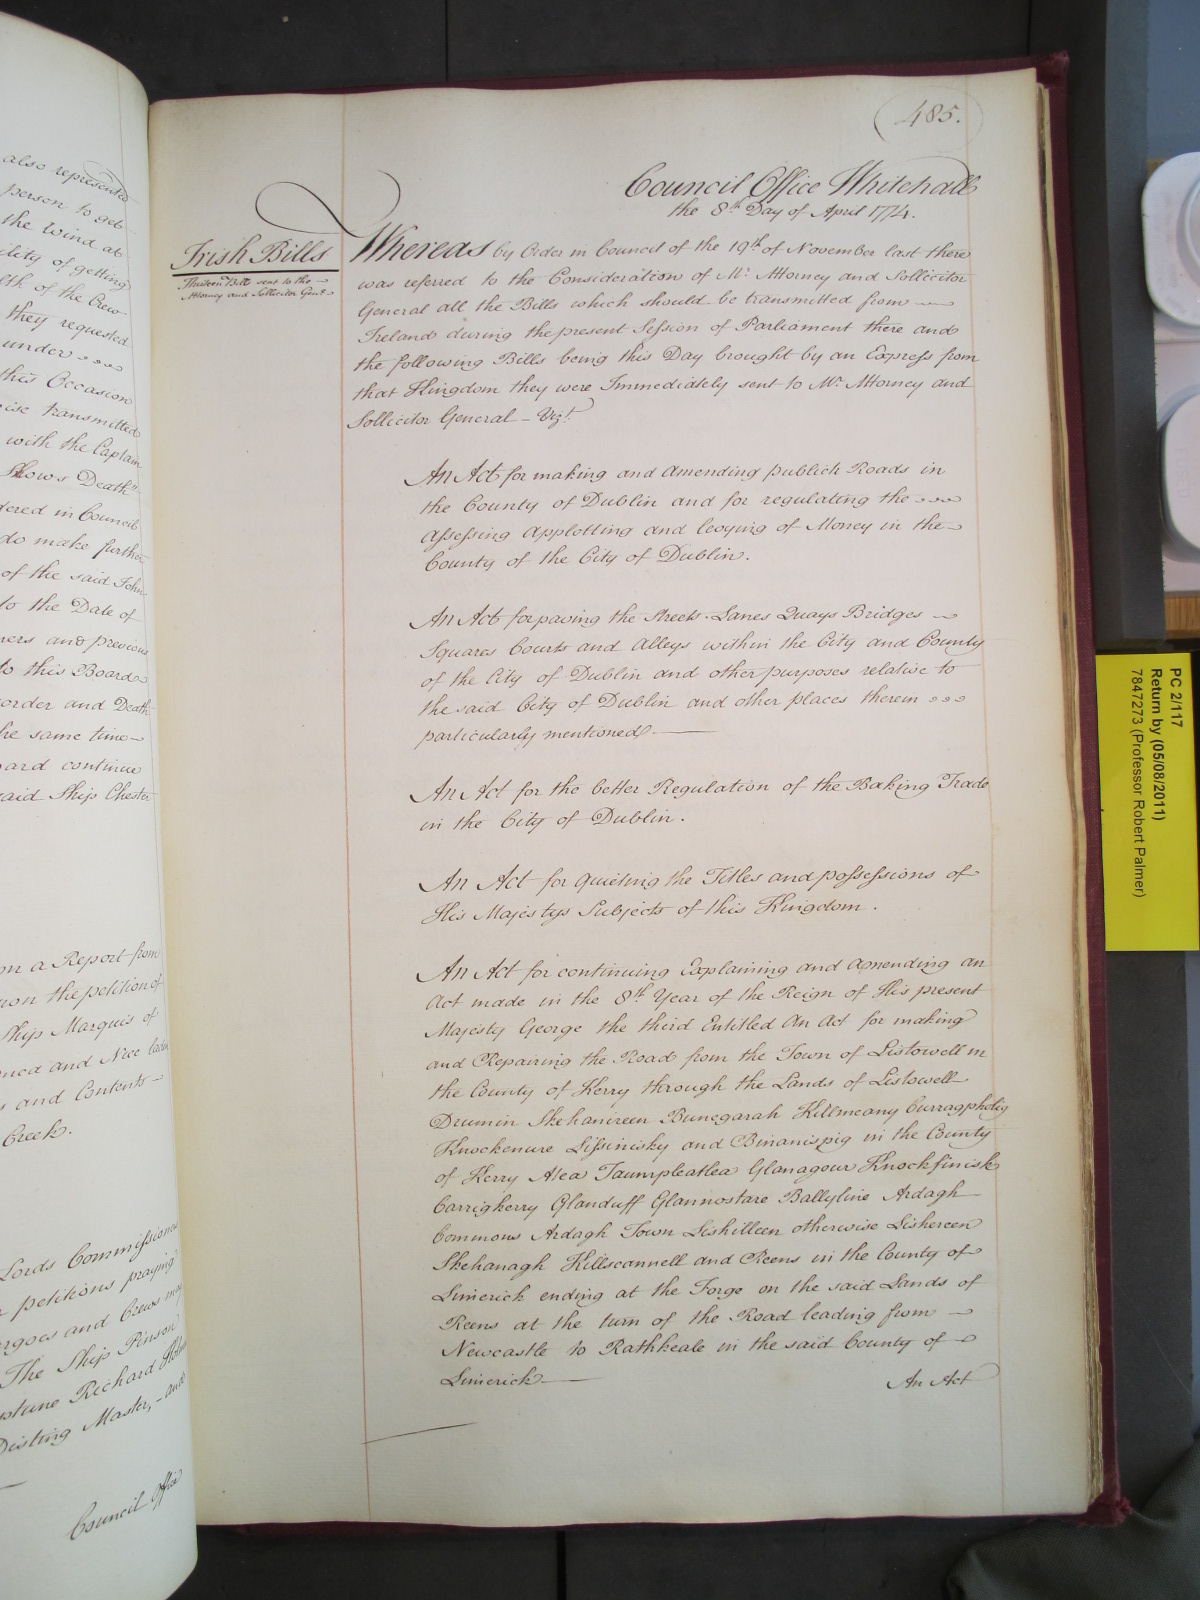 also represented
person to get
the Wind at
ility of getting
lth of the Crew
they requested
under
this Occasion
ise transmitted
with the Captain
Death
dered in Council
do make further
of the said John
to the Date of
ners and previous
to this Board
order and Death
he same time
ard continue
said Ship Chester
on a Report from
upon the petition of
Ship Marquis of
and Contents
Creek.
Lords Commissioners
petitions praying
argoes and Crews may
The Ship Pinson
Richard
Master, and
Council Office
485.
Council Office Whitehall
the 8th Day of April 1774.
Irish Bills
Thirteen Bills sent to the
Attorney and Sollicitor Genl.
Whereas by Order in Council of the 19th of November last there
was referred to the Consideration of Mr. Attorney and Sollicitor
General all the Bills which should be transmitted from
Ireland during the present Session of Parliament there and
the following Bills being this Day brought by an Express from
that Kingdom they were Immediately sent to Mr. Attorney and
Sollicitor General - Vizt.
An Act for making and amending publick Roads in
the County of Dublin and for regulating the
assessing applotting and levying of Money in the
County of the City of Dublin.
An Act for paving the Streets Lanes Quays Bridges
Squares Courts and Alleys within the City and County
of the City of Dublin and other purposes relative to
the said City of Dublin and other places therein
particularly mentioned.
An Act for the better Regulation of the Baking Trade
in the City of Dublin.
An Act for quieting the Titles and possessions of
His Majestys Subjects of this Kingdom.
An Act for continuing Explaining and Amending an
Act made in the 8th Year of the Reign of His present
Majesty George the third Entitled An Act for making
and Repairing the Road from the Town of Listowell in
the County of Kerry through the Lands of Listowell
Drumin Skehanireen Bunegarah Killmeany Curraghpholig
Knockenure Lissinisky and Binanispig in the County
of Kerry Atea Taumpleatlea Glanagour Knockfinisk
Carrigkerry Glanduff Glannostare Ballyline Ardagh
Commons Ardagh Town Liskilleen otherwise Liskereen
Skehanagh Killscannell and Reens in the County of
Limerick ending at the Forge on the said Lands of
Reens at the turn of the Road leading from
Newcastle to Rathkeale in the said County of
Limerick
An Act
PC 2/117
Return by (05/08/2011)
7847273 (Professor Robert Palmer)